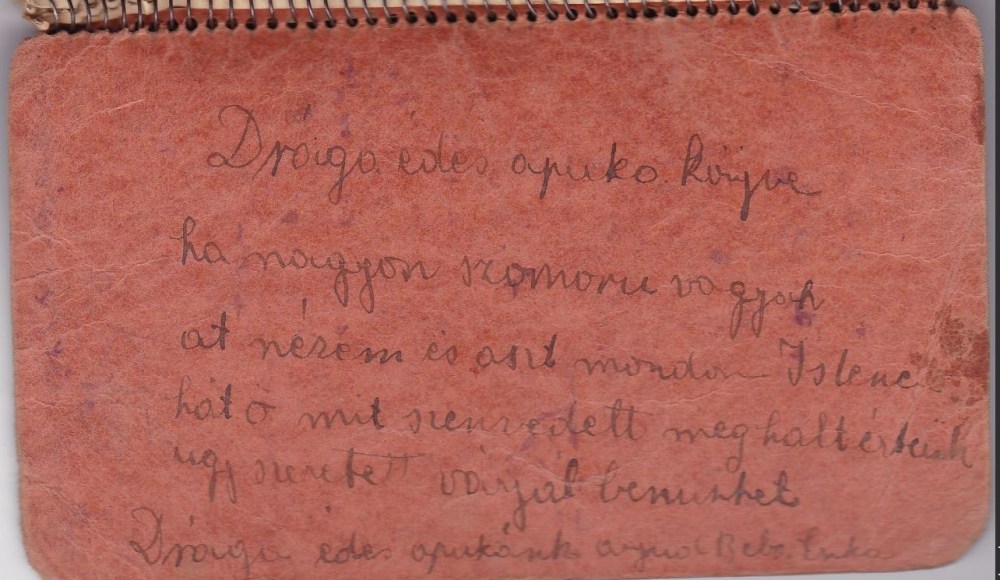 Drága édes apuka könyve
ha nagyon szomoru vagyok
át nézem és aszt mondom Istenem
hát ő mit szenvedett meghalt értünk
ugy szeretett várjál benünket
Drága édes apukánk